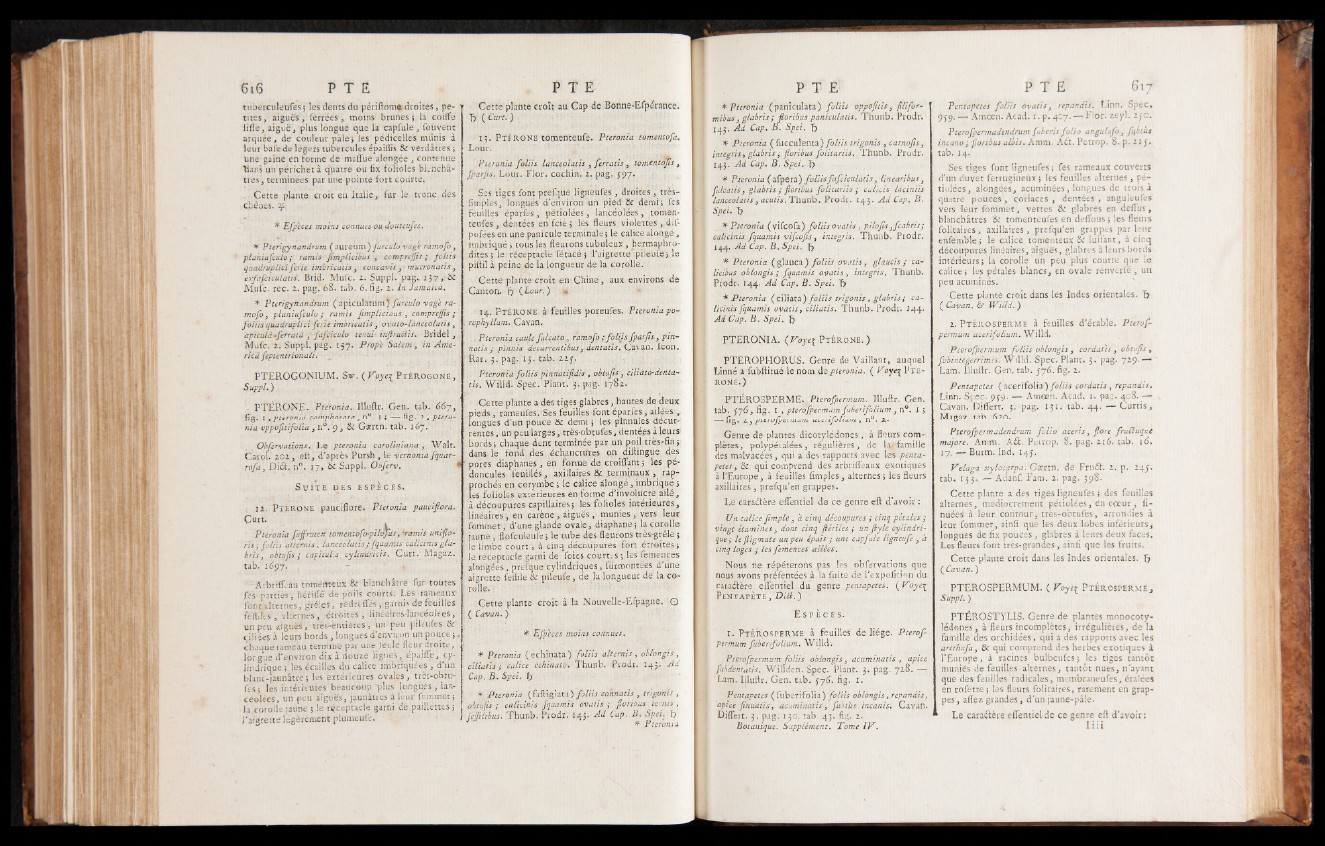 616 P T E P T E
tuberculeuses; les dents du péristome droites, pe-
tites, aiguës, serrées, moins brunes; la coiffe
lisse, aiguë, plus longue que la capsule, souvent
arquée, de couleur pale; les pédicelles munis à
leur base de légers tubercules épaissis & verdâtres;
une gaîne en forme de massue alongée, contenue
dans un périchet à quatre ou six folioles blanchâ-
tres, terminées par une pointe fort courte.
Cette plante croît en Italie, sur le tronc des
chênes. ♃
* Espèces moins connues ou douteuses.
* Pterigynandrum (aureum) surculo vagè ramoso,
planiusculo; ramis simplicibus, compressis; foliis
quadruplici serie imbricatis, concavis, mucronatis,
exfasciculatis. Brid. Musc. 2. Suppl. pag. 137, &
Musc. rec. 2. pag. 68. tab. 6. fig. 2. In Jamaica.
* Pterigynandrum (apiculatum) surculo vagè ra-
moso, planiusculo; ramis simplicibus, compressis;
foliis quadruplici serie imbricatis, ovato-lanceolatis,
apiculo serrato, fasciculo texti instructis. Bridel,
Musc. 2. Suppl. pag. 137. Propè Salem, in Ame-
ricâ septentrionali.
PTEROGONIUM. Sw. (Voyez PTÉROGONE,
Suppl.)
PTÉRONE. Pteronia. Illustr. Gen. tab. 667,
fig. 1, pteronia camphorata, n°. 1; — fig. 2, ptero-
nia oppositifolia, n°. 9, & Gærtn. tab. 167.
Observations. Le pteronia caroliniana, Walt.
Carol. 202, est, d'après Pursh, le vernonia squar-
rosa, Dict. n°. 17, & Suppl. Observ.
SUITE DES ESPÈCES.
12. PTÉRONE pauciflore. Pteronia pauciflora.
Curt.
Pteronia suffrutex tomentoso-pilosus, ramis uniflo-
ris; foliis alternis, lanceolatis; squamis calicinis gla-
bris, obtusis; capitulis cylindricis. Curt. Magaz.
tab. 1697.
Arbrisseau tomenteux & blanchâtre sur toutes
ses parties, hérissé de poils courts. Les rameaux
sont alternes, grêles, redressés, garnis de feuilles
sessiles, alternes, étroites, linéaires-lancéolées,
un peu aiguës, très-entières, un peu pileuses &
ciliées à leurs bords, longues d'environ un pouce;
chaque rameau terminé par une seule fleur droite,
longue d'environ dix à douze lignes, épaisse, cy-
lindrique; les écailles du calice imbriquées, d'un
blanc-jaunâtre; les extérieures ovales, très-obtu-
ses; les intérieures beaucoup plus longues, lan-
céolées, un peu aiguës, jaunâtres à leur sommet;
la corolle jaune; le réceptacle garni de paillettes;
l'aigrette légérement plumeuse.
Cette plante croît au Cap de Bonne-Espérance.
♄ (Curt.)
13. PTÉRONE tomenteuse. Pteronia tomentosa.
Lour.
Pteronia foliis lanceolatis, serratis, tomentosis,
sparsis. Lour. Flor. cochin. 2. pag. 597.
Ses tiges sont presque ligneuses, droites, très-
simples, longues d'environ un pied & demi; ses
feuilles éparses, pétiolées, lancéolées, tomen-
teuses, dentées en scie; les fleurs violettes, dis-
posées en une panicule terminale; le calice alongé,
imbriqué; tous les fleurons tubuleux, hermaphro-
dites; le réceptacle sétacé; l'aigrette pileuse; le
pistil à peine de la longueur de la corolle.
Cette plante croît en Chine, aux environs de
Canton. ♄ (Lour.)
14. PTÉRONE à feuilles poreuses. Pteronia po-
rophyllum. Cavan.
Pteronia caule sulcato, ramoso; foliis sparsis, pin-
natis; pinnis decurrentibus, dentatis. Cavan. Icon.
Rar. 3. pag. 13. tab. 225.
Pteronia foliis pinnatifidis, obtusis, ciliato-denta-
tis. Willd. Spec. Plant. 3. pag. 1782.
Cette plante a des tiges glabres, hautes de deux
pieds, rameuses. Ses feuilles sont éparses, ailées,
longues d'un pouce & demi; les pinnules décur-
rentes, un peu larges, très-obtuses, dentées à leurs
bords; chaque dent terminée par un poil très-fin;
dans le fond des échancrures on distingue des
pores diaphanes, en forme de croissant; les pé-
doncules feuillés, axillaires & terminaux, rap-
prochés en corymbe; le calice alongé, imbriqué;
les folioles extérieures en forme d'involucre ailé,
à découpures capillaires; les folioles intérieures,
linéaires, en carène, aiguës, munies, vers leur
sommet, d'une glande ovale, diaphane; la corolle
jaune, flosculeuse; le tube des fleurons très-grêle;
le limbe court, à cinq découpures fort étroites;
le réceptacle garni de soies courtes; les semences
alongées, presque cylindriques, surmontées d'une
aigrette sessile & pileuse, de la longueur de la co-
rolle.
Cette plante croît à la Nouvelle-Espagne. ☉
(Cavan.)
* Espèces moins connues.
* Pteronia (echinata) foliis alternis, oblongis,
ciliatis; calice echinato. Thunb. Prodr. 143. Ad
Cap. B. Spei. ♄
* Pteronia (fastigiata) foliis connatis, trigonis,
obtusis; calicinis squamis ovatis; floribus ternis,
sessilibus. Thunb. Prodr. 143. Ad Cap. B. Spei. ♄
* Pteronia
P T E P T E 617
* Pteronia (paniculata) foliis oppositis, filifor-
mibus, glabris; floribus paniculatis. Thunb. Prodr.
143. Ad Cap. B. Spei. ♄
* Pteronia (succulenta) foliis trigonis, carnosis,
integris, glabris; floribus solitariis. Thunb. Prodr.
143. Ad Cap. B. Spei. ♄
* Pteronia (aspera) foliis fasciculatis, linearibus,
falcatis, glabris; floribus solitariis; calicis laciniis
lanceolatis, acutis. Thunb. Prodr. 143. Ad Cap. B.
Spei. ♄
* Pteronia (viscosa) foliis ovatis, pilosis, scabris;
calicinis squamis viscosis, integris. Thunb. Prodr.
144. Ad Cap. B. Spei. ♄
* Pteronia (glauca) foliis ovatis, glaucis; ca-
licibus oblongis; squamis ovatis, integris. Thunb.
Prodr. 144. Ad Cap. B. Spei. ♄
* Pteronia (ciliata) foliis trigonis, glabris; ca-
licinis squamis ovatis, ciliatis. Thunb. Prodr. 144.
Ad Cap. B. Spei. ♄
PTERONIA. (Voyez PTÉRONE.)
PTEROPHORUS. Genre de Vaillant, auquel
Linné a substitué le nom de pteronia. (Voyez PTÉ-
RONE.)
PTÉROSPERME. Pterospermum. Illustr. Gen.
tab. 576, fig. 1, pterospermum suberifolium, n°. 1;
— fig. 2, pterospermum acerifolium, n°. 2.
Genre de plantes dicotylédones, à fleurs com-
plètes, polypétalées, régulières, de la famille
des malvacées, qui a des rapports avec les penta-
petes, & qui comprend des arbrisseaux exotiques
à l'Europe, à feuilles simples, alternes; les fleurs
axillaires, presqu'en grappes.
Le caractère essentiel de ce genre est d'avoir:
Un calice simple, à cinq découpures; cinq pétales;
vingt étamines, dont cinq stériles; un style cylindri-
que; le stigmate un peu épais; une capsule ligneuse, à
cinq loges; les semences ailées.
Nous ne répéterons pas les observations que
nous avons présentées à la suite de l'exposition du
caractère essentiel du genre pentapetes. (Voyez
PENTAPÈTE, Dict.)
ESPÈCES.
1. PTÉROSPERME à feuilles de liége. Pteros-
permum suberifolium. Willd.
Pterospermum foliis oblongis, acuminatis, apice
subdentatis. Willden. Spec. Plant. 3. pag. 728. —
Lam. Illustr. Gen. tab. 576. fig. 1.
Pentapetes (suberifolia) foliis oblongis, repandis,
apice sinuatis, acuminatis, subtùs incanis. Cavan.
Dissert. 3. pag. 130. tab. 43. fig. 2.
Botanique. Supplément. Tome IV.
Pentapetes foliis ovatis, repandis. Linn. Spec.
959. — Amœn. Acad. 1. p. 407. — Flor. zeyl. 250.
Pterospermadendrum suberis folio anguloso, subtùs
incano; floribus albis. Amm. Act. Petrop. 8. p. 215.
tab. 14.
Ses tiges sont ligneuses; ses rameaux couverts
d'un duvet ferrugineux; les feuilles alternes, pé-
tiolées, alongées, acuminées, longues de trois à
quatre pouces, coriaces, dentées, anguleuses
vers leur sommet, vertes & glabres en dessus,
blanchâtres & tomenteuses en dessous; les fleurs
solitaires, axillaires, presqu'en grappes par leur
ensemble; le calice tomenteux & luisant, à cinq
découpures linéaires, aiguës, glabres à leurs bords
intérieurs; la corolle un peu plus courte que le
calice; les pétales blancs, en ovale renversé, un
peu acuminés.
Cette plante croît dans les Indes orientales. ♄
(Cavan. & Willd.)
2. PTÉROSPERME à feuilles d'érable. Pteros-
permum acerifolium. Willd.
Pterospermum foliis oblongis, cordatis, obtusis,
subintegerrimis. Willd. Spec. Plant. 3. pag. 729. —
Lam. Illustr. Gen. tab. 576. fig. 2.
Pentapetes (acerifolia) foliis cordatis, repandis.
Linn. Spec. 959. — Amœn. Acad. 1. pag. 408. —
Cavan. Dissert. 3. pag. 131. tab. 44. — Curtis,
Magaz. tab. 620.
Pterospermadendrum folio aceris, flore fructuque
majore. Amm. Act. Petrop. 8. pag. 216. tab. 16.
17. — Burm. Ind. 145.
Velaga xylocarpa. Gærtn. de Fruct. 2. p. 245.
tab. 133. — Adans. Fam. 2. pag. 398.
Cette plante a des tiges ligneuses; des feuilles
alternes, médiocrement pétiolées, en cœur, si-
nuées à leur contour, très-obtuses, arrondies à
leur sommet, ainsi que les deux lobes inférieurs,
longues de six pouces, glabres à leurs deux faces.
Les fleurs sont très-grandes, ainsi que les fruits.
Cette plante croît dans les Indes orientales. ♄
(Cavan.)
PTEROSPERMUM. (Voyez PTÉROSPERME,
Suppl.)
PTÉROSTYLIS. Genre de plantes monocoty-
lédones, à fleurs incomplètes, irrégulières, de la
famille des orchidées, qui a des rapports avec les
arethusa, & qui comprend des herbes exotiques à
l'Europe, à racines bulbeuses; les tiges tantôt
munies de feuilles alternes, tantôt nues, n'ayant
que des feuilles radicales, membraneuses, étalées
en rosette; les fleurs solitaires, rarement en grap-
pes, assez grandes, d'un jaune-pâle.
Le caractère essentiel de ce genre est d'avoir:
Iiii